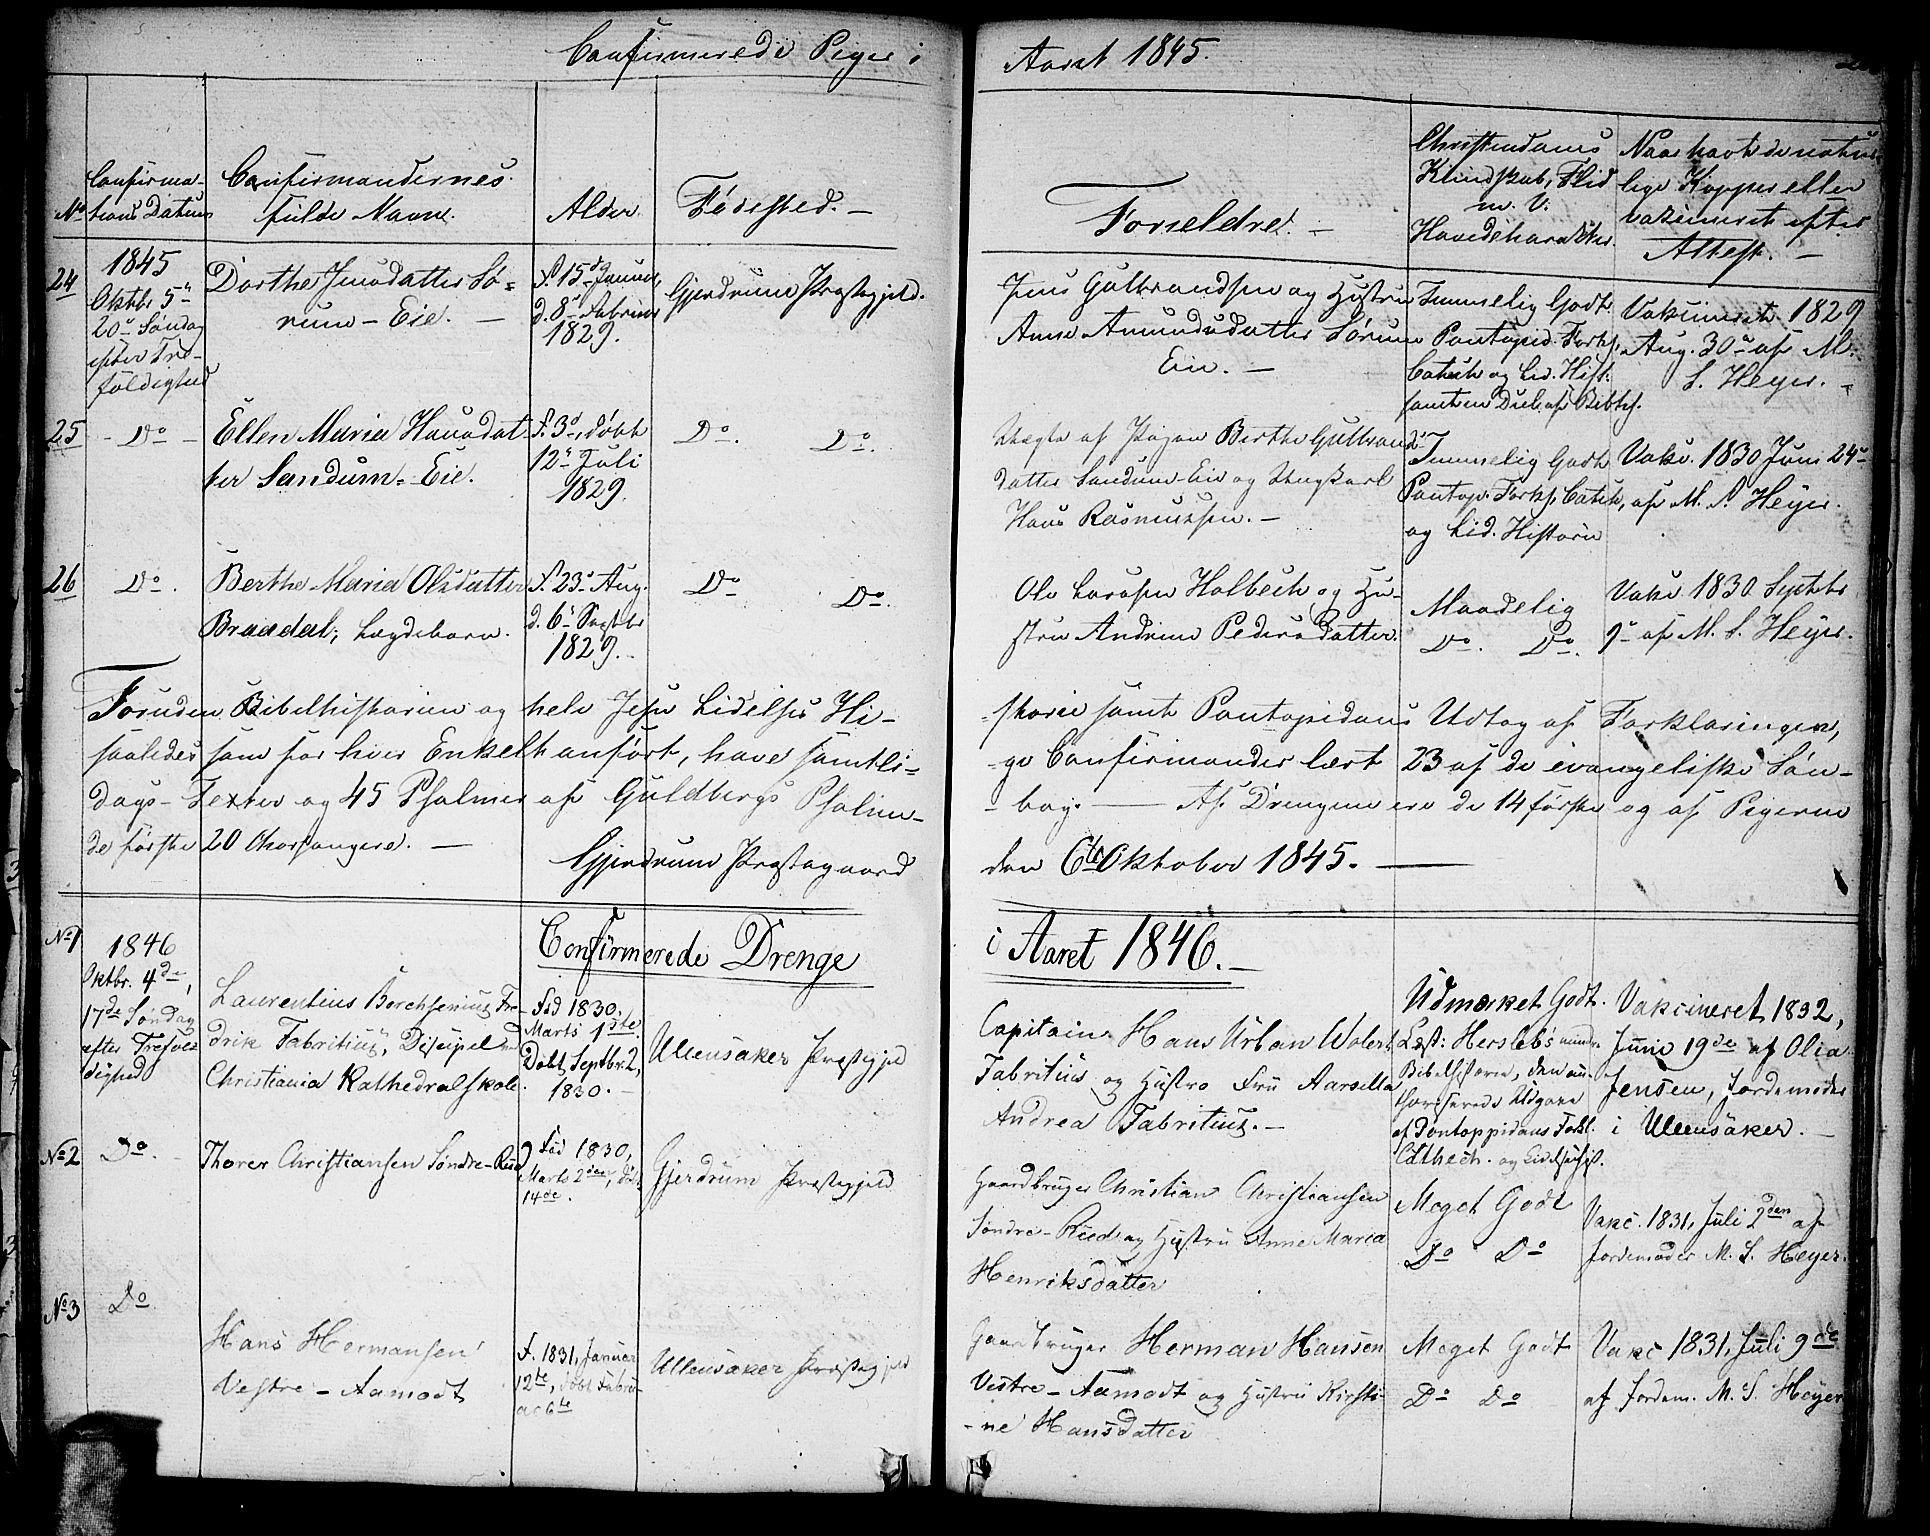 Confirmerede Piger i Aaret 1845.
No
Confirma-
tions Datum
Confirmandernes
fulde Navne.
Alder.
Fødested. —
Forældre. —
Christendoms
Kundskab, Flid
m. V.
Hovedcharakter.
Naar havt de natur-
lige Kopper eller
vaccineret efter
Attest. —
24
1845
Oktbr 5te
20de Søndag
efter Tre-
foldighed
Dorthe Jensdatter Sø-
rum-Eie. —
f. 15de Januar,
d. 8de Februar
1829.
Gjerdrum Præstegjeld.
Jens Gulbrandsen og Hustru
Anne Amundsdatter Sørum
Eie. —
Temmelig Godt
Pontopid. Forkl.
Catech og Lid. Hist.
samt en Deel af Bibhs.
Vakcineret 1829
Aug. 30te af M.
S. Heyer. -
25
- Do -
Ellen Maria Hansdat-
ter Sandum-Eie.
f. 3de, døbt
12te Juli
1829.
Do. Do.
Uægte af Pigen Berthe Gulbrands-
datter Sandum-Eie og Ungkarl
Hans Rasmussen. —
Temmelig Godt
Pontop. Forkl. Catech,
og Lid. Historie
Vakc. 1830 Juni 24de
af M. S. Heyer.
26
Do.
Berthe Maria Olsdatter
Braadal, Lægdebarn.
f. 23de Aug.
d. 6te Septbr
1829.
Do Do.
Ole Larsen Holbech og Hu-
stru Andrine Pedersdatter.
Maadelig
Do. Do.
Vakc. 1830 Septbr
9de af M. S. Heyer.
Foruden Bibelhistorien og hele Jesu Lidelses Hi-
-storie samt Pontopidans Udtog af Forklaringen,
saaledes som for hver Enkelt anført, have samtli-
-ge Confirmander lært 23 af de evangeliske Søn-
dags-Texter og 45 Psalmer af Guldbergs Psalme-
-bog. — Af Drengene ere de 14 første og af Pigerne
de første 20 Chorsangere. —
Gjerdrum Præstegaard
den 6te Oktober 1845. —
Confirmerede Drenge i Aaret 1846. —
No 1
1846
Oktbr. 4de,
17de Søndag
efter Trefol-
dighed
Laurentius Borchsenius Fre-
drik Fabritius, Discipel ved
Christiania Kathedralskole.
Fød 1830.
Marts 1ste.
Døbt Septbr. 2,
1830. -
Ullensaker Præstegjeld
Capitain Hans Urban Wolert
Fabritius og Hustro Fru Aarsille
Andrea Fabritius. —
Udmærket Godt.
Læst: Herslebs mindre
Bibelhistorie, den au-
thoriserede Udgave
af Pontoppidans Forkl.
Cathech. og Lidelseshist.
Vakcineret 1832,
Juni 19de af Olia
Jensen, Jordemoder
i Ullensaker. —
No 2
Do. -
Thorer Christiansen Søndre-Rud
Fød 1830,
Marts 2den, døbt
14de.
Gjerdrum Præstegjeld
Gaardbruger Christian Christiansen
Søndre-Rud og Hustru Anne Maria
Henriksdatter
Meget Godt
Do Do
Vakc. 1831, Juli 2den af
Jordemoder M. S. Heyer.
No 3
Do.
Hans Hermansen
Vestre-Aamodt
f. 1831, Januar
12te, døbt Febru-
ar 6te
Ullensaker Præstegjeld
Gaardbruger Herman Hansen
Vestre-Aamodt og Hustru Kirsti-
-ne Hansdatter
Meget Godt
Do Do
Vakc 1831, Juli 9de
af Jordem. M. S. Heyer